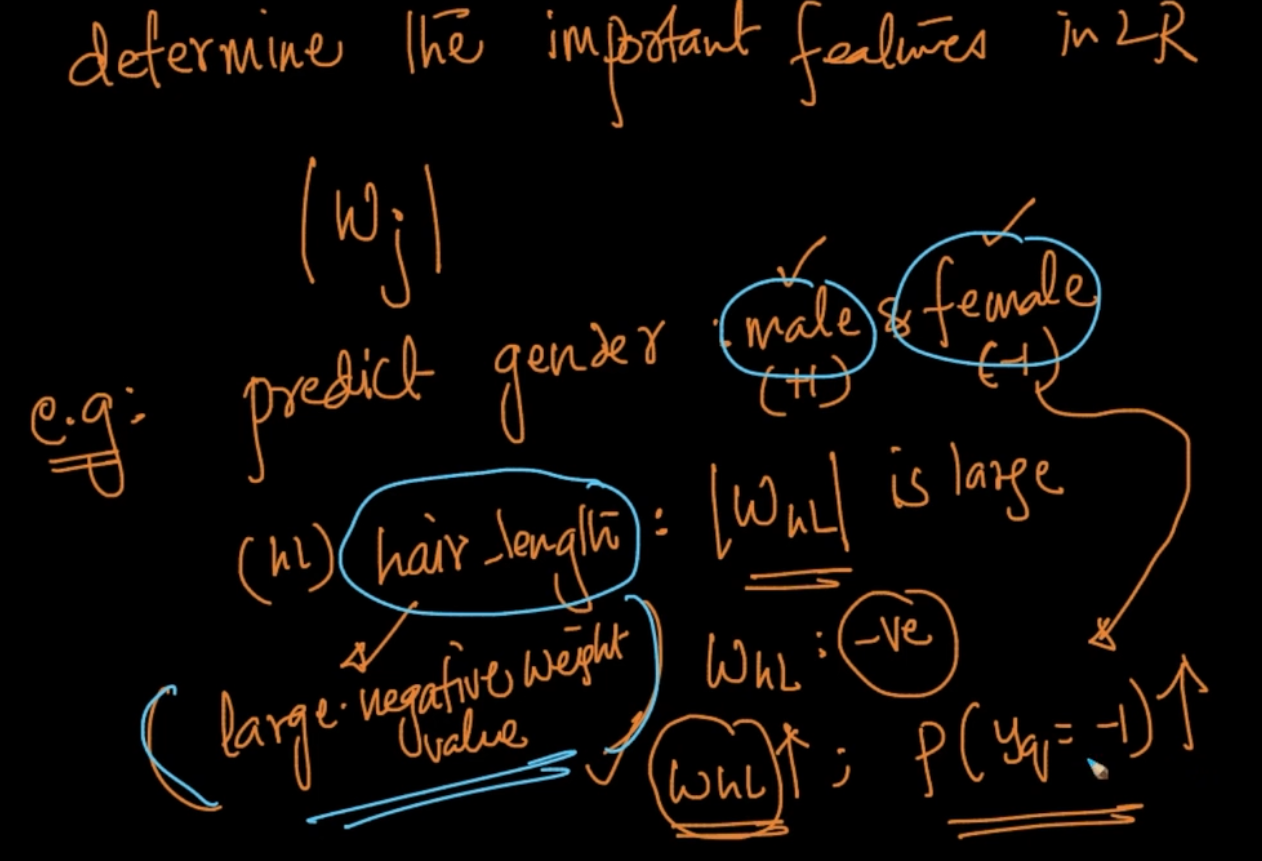 determine the important features in LR
|Wj|
e.g: predict gender : male & female
(+1) (-1)
(hL) hair_length : |WhL| is large
(large negative weight value)
WhL : -ve
WhL ↑ ; P(yq = -1) ↑